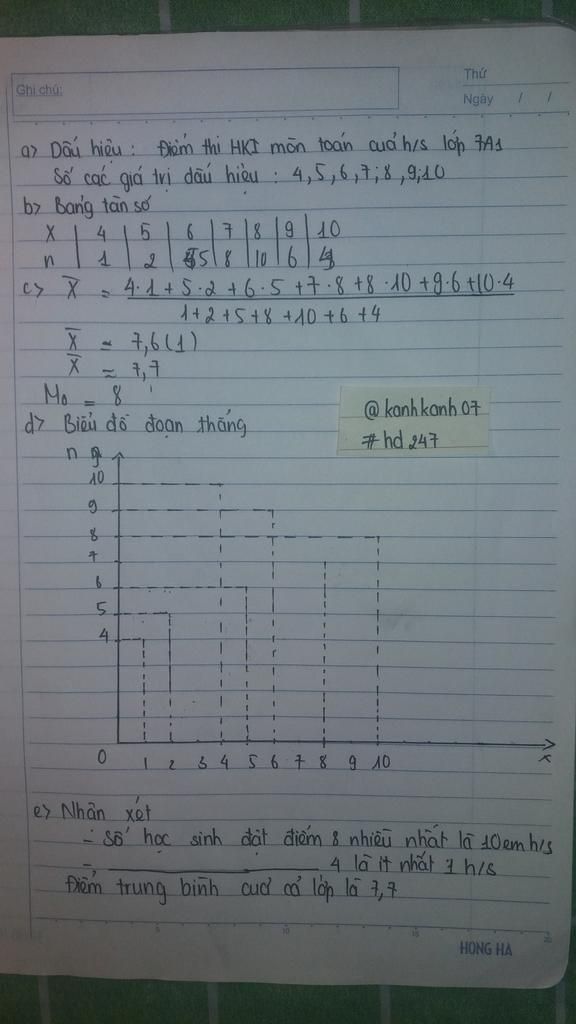 Ghi chú:
Thứ
Ngày / /
a> Dấu hiệu : Điểm thi HKI môn toán của h/s lớp 7A1
Số các giá trị dấu hiệu : 4,5,6,7,8,9,10
b> Bảng tần số
X | 4 | 5 | 6 | 7 | 8 | 9 | 10
n | 1 | 2 | 5 | 8 | 10 | 6 | 4
c> X̄ = 4·1+5·2+6·5+7·8+8·10+9·6+10·4
1+2+5+8+10+6+4
X̄ = 7,6(1)
X̄ ≈ 7,7
Mo = 8
@kanhkanh07
#hd247
d> Biểu đồ đoạn thẳng
n
10
9
8
7
6
5
4
0 1 2 3 4 5 6 7 8 9 10
x
e> Nhận xét
- Số học sinh đạt điểm 8 nhiều nhất là 10em h/s
- ____________ 4 là ít nhất 1 h/s
Điểm trung bình của cả lớp là 7,7
5 10 15 20
HONG HA